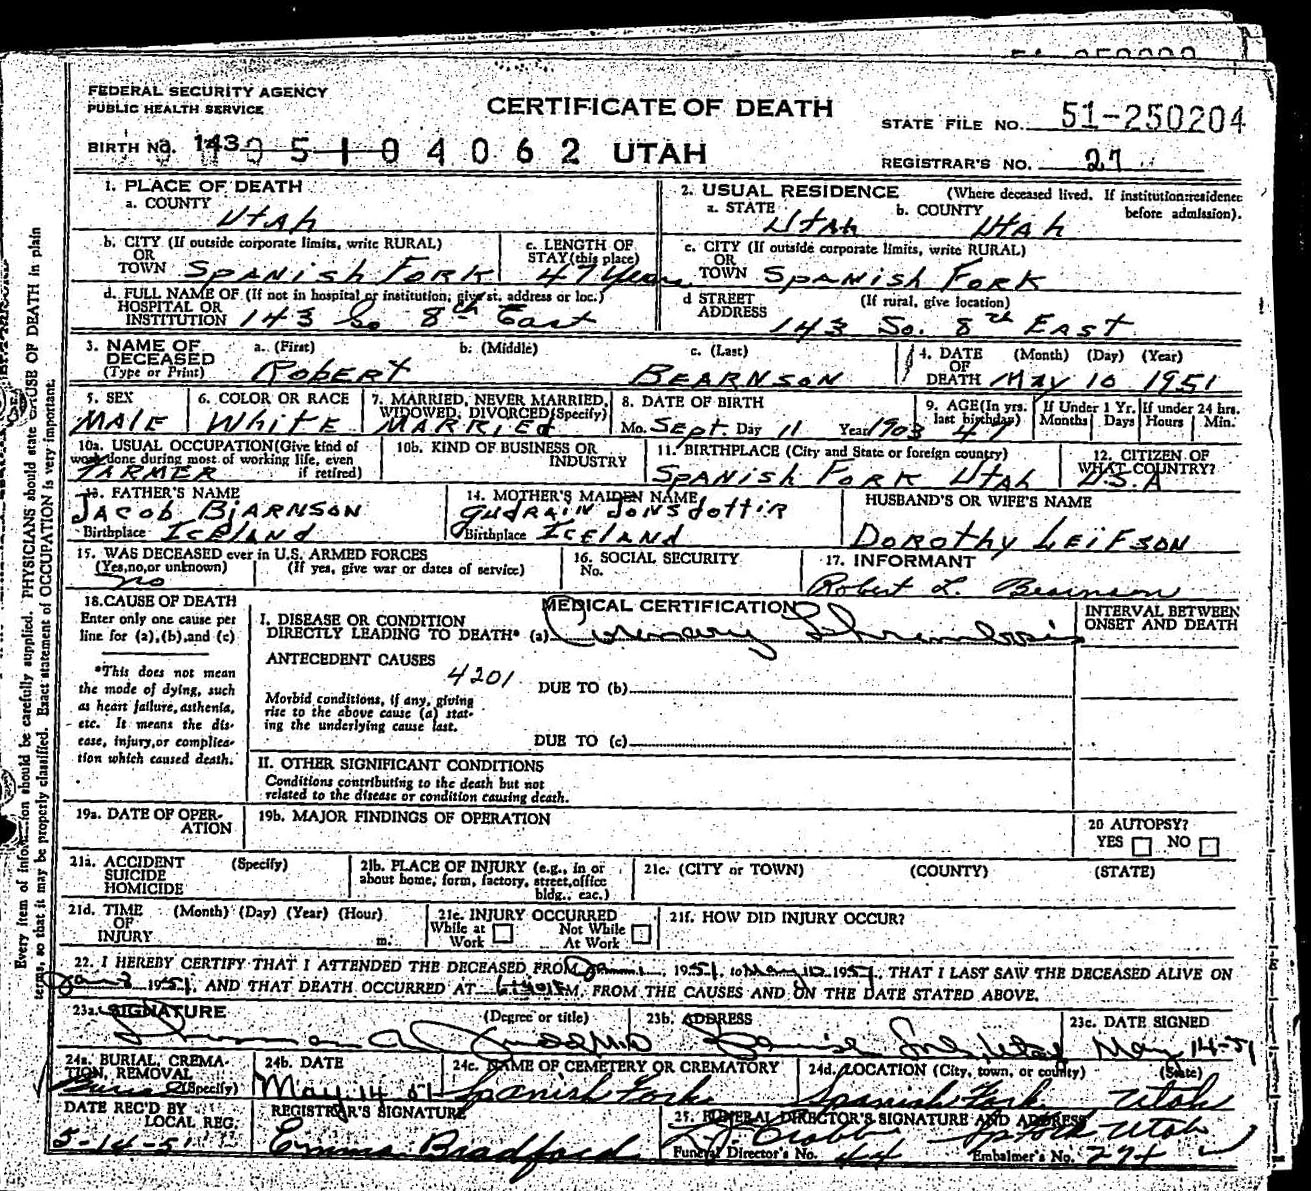 FEDERAL SECURITY AGENCY
PUBLIC HEALTH SERVICE
CERTIFICATE OF DEATH
STATE FILE NO. 51-250204
BIRTH NO. 143 05104062 UTAH
REGISTRAR'S NO. 27
1. PLACE OF DEATH
a. COUNTY Utah
2. USUAL RESIDENCE (Where deceased lived. If institution: residence before admission).
a. STATE Utah b. COUNTY Utah
b. CITY (If outside corporate limits, write RURAL) OR TOWN Spanish Fork
c. LENGTH OF STAY (this place) 47 Years
c. CITY (If outside corporate limits, write RURAL) OR TOWN Spanish Fork
d. FULL NAME OF (If not in hospital or institution, give st. address or loc.) HOSPITAL OR INSTITUTION 143 So 8th East
d STREET ADDRESS (If rural, give location) 143 So. 8th East
3. NAME OF DECEASED (Type or Print) a. (First) Robert b. (Middle) c. (Last) Bearnson
4. DATE OF DEATH (Month) (Day) (Year) May 10 1951
5. SEX Male
6. COLOR OR RACE White
7. MARRIED, NEVER MARRIED, WIDOWED, DIVORCED (Specify) Married
8. DATE OF BIRTH Mo. Sept. Day 11 Year 1903
9. AGE (In yrs. last birthday) 47
If Under 1 Yr. Months Days
If under 24 hrs. Hours Min.
10a. USUAL OCCUPATION (Give kind of work done during most of working life, even if retired) Farmer
10b. KIND OF BUSINESS OR INDUSTRY
11. BIRTHPLACE (City and State or foreign country) Spanish Fork Utah
12. CITIZEN OF WHAT COUNTRY? U.S.A
13. FATHER'S NAME Jacob Bjarnson
Birthplace Iceland
14. MOTHER'S MAIDEN NAME Gudrain Jonsdottir
Birthplace Iceland
HUSBAND'S OR WIFE'S NAME
Dorothy Leifson
15. WAS DECEASED ever in U.S. ARMED FORCES
(Yes, no, or unknown) (If yes, give war or dates of service)
no
16. SOCIAL SECURITY No.
17. INFORMANT
Robert L. Bearnson
18. CAUSE OF DEATH
Enter only one cause per line for (a), (b), and (c)
*This does not mean the mode of dying, such as heart failure, asthenia, etc. It means the disease, injury, or complication which caused death.
MEDICAL CERTIFICATION
I. DISEASE OR CONDITION DIRECTLY LEADING TO DEATH* (a) Coronary Thrombosis
INTERVAL BETWEEN ONSET AND DEATH
ANTECEDENT CAUSES
4201
Morbid conditions, if any, giving rise to the above cause (a) stating the underlying cause last.
DUE TO (b)
DUE TO (c)
II. OTHER SIGNIFICANT CONDITIONS
Conditions contributing to the death but not related to the disease or condition causing death.
19a. DATE OF OPERATION
19b. MAJOR FINDINGS OF OPERATION
20 AUTOPSY?
YES NO
21a. ACCIDENT SUICIDE HOMICIDE (Specify)
21b. PLACE OF INJURY (e.g., in or about home, form, factory, street, office bldg., eac.)
21c. (CITY or TOWN) (COUNTY) (STATE)
21d. TIME OF INJURY (Month) (Day) (Year) (Hour) m.
21e. INJURY OCCURRED
While at Work Not While At Work
21f. HOW DID INJURY OCCUR?
22. I HEREBY CERTIFY THAT I ATTENDED THE DECEASED FROM 1951, to May 10 1951, THAT I LAST SAW THE DECEASED ALIVE ON
1951, AND THAT DEATH OCCURRED AT M. FROM THE CAUSES AND ON THE DATE STATED ABOVE.
23a. SIGNATURE (Degree or title)
23b. ADDRESS Spanish Fork, Utah
23c. DATE SIGNED May 14-51
24a. BURIAL, CREMATION, REMOVAL (Specify) Burial
24b. DATE May 14 51
24c. NAME OF CEMETERY OR CREMATORY Spanish Fork
24d. LOCATION (City, town, or county) (State) Spanish Fork Utah
DATE REC'D BY LOCAL REG. 5-14-51
REGISTRAR'S SIGNATURE
Emma Bradford
25. FUNERAL DIRECTOR'S SIGNATURE AND ADDRESS
Sp Fork Utah
Funeral Director's No. 44 Embalmer's No. 274
Every item of information should be carefully supplied. PHYSICIANS should state CAUSE OF DEATH in plain
terms, so that it may be properly classified. Exact statement of OCCUPATION is very important.